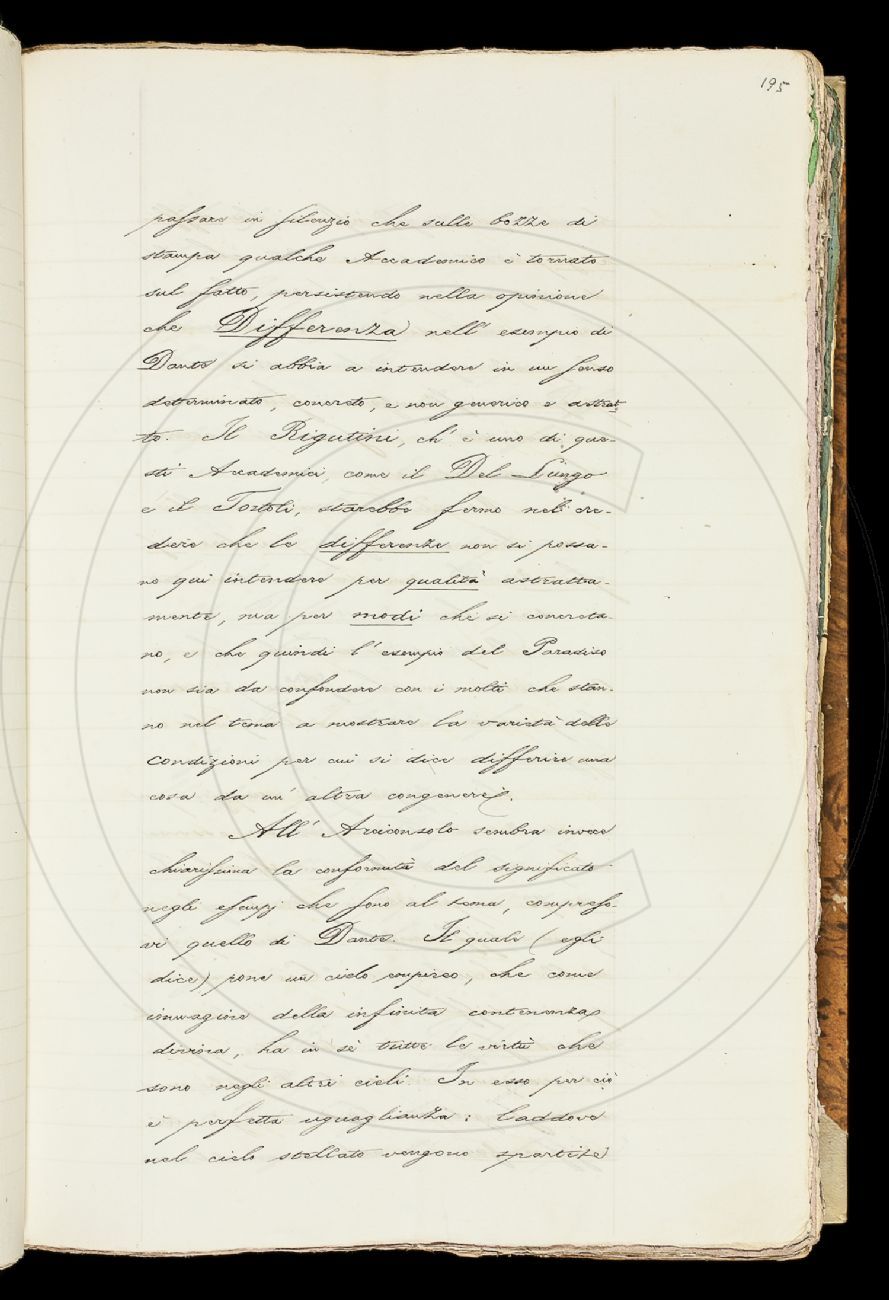 195
passare in silenzio che sulle bozze di
stampa qualche Accademico è tornato
sul fatto, persistendo nella opinione
che Differenza nell' esempio di
Dante si abbia a intendere in un senso
determinato, concreto, e non generico e astrat-
to. Il Rigutini, ch' è uno di que-
sti Accademici, come il Del Lungo
e il Tortoli, starebbe fermo nel cre-
dere che le differenze non si possa-
no qui intendere per qualità astratta-
mente, ma per modi che si concreta-
no, e che quindi l' esempio del Paradiso
non sia da confondere con i molti che stan-
no nel tema a mostrare la varietà delle
condizioni per cui si dice differire una
cosa da un' altra congenere.
All' Arciconsolo sembra invece
chiarissima la conformità del significato
negli esempj che sono al tema, compreso-
vi quello di Dante. Il quale (egli
dice) pone un cielo empireo, che come
immagine della infinita contenenza
divina, ha in sè tutte le virtù che
sono negli altri cieli. In esso per ciò
è perfetta uguaglianza: laddove
nel cielo stellato vengono spartite